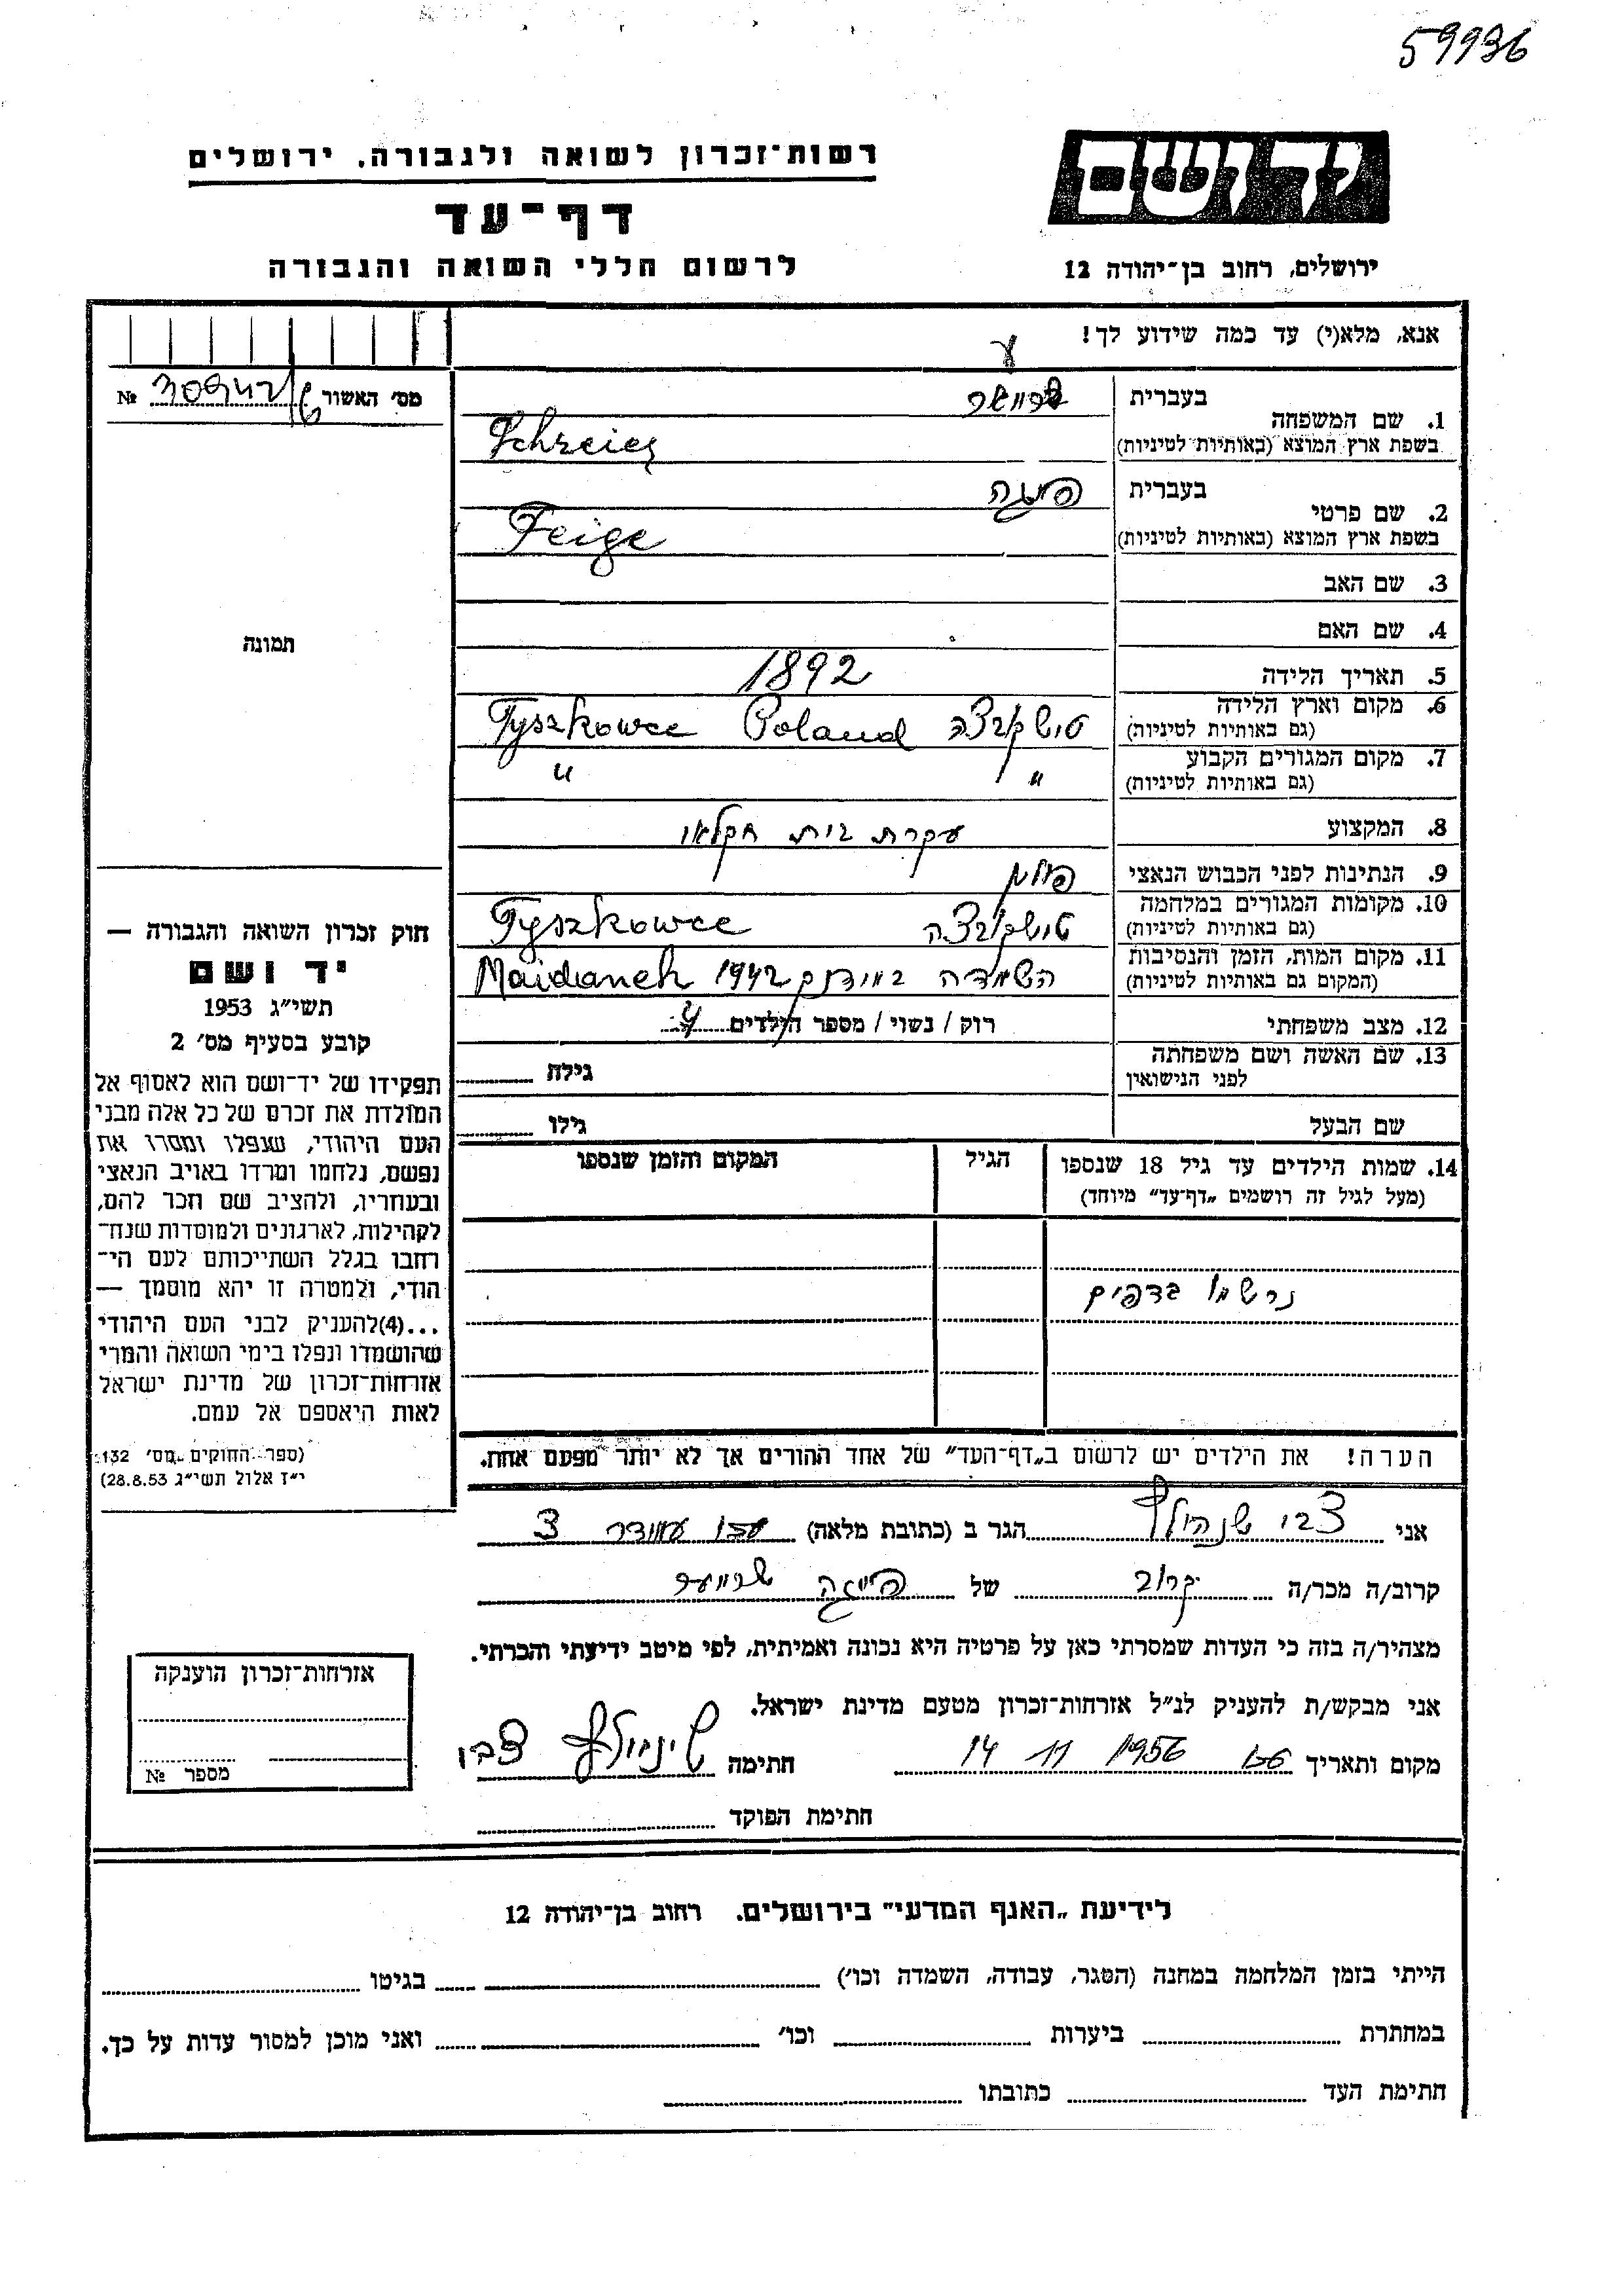 59936
רשות־זכרון לשואה ולגבורה, ירושלים
יד ושם
דף־עד
לרשום חללי השואה והגבורה
ירושלים, רחוב בן־יהודה 12
אנא, מלא(י) עד כמה שידוע לך!
מס׳ האשור № 309427
1. שם המשפחה
בעברית
בשפת ארץ המוצא (באותיות לטיניות) Schreier
2. שם פרטי
בעברית פייגה
בשפת ארץ המוצא (באותיות לטיניות) Feige
3. שם האב
4. שם האם
תמונה
5. תאריך הלידה 1892
6. מקום וארץ הלידה
(גם באותיות לטיניות) טישקובצה Poland Tyszkowce
7. מקום המגורים הקבוע
(גם באותיות לטיניות) " "
8. המקצוע עקרת בית חקלאי
9. הנתינות לפני הכבוש הנאצי פולין
10. מקומות המגורים במלחמה
(גם באותיות לטיניות) טישקובצה Tyszkowce
11. מקום המות, הזמן והנסיבות
(המקום גם באותיות לטיניות) השמדה במידנק 1942 Maidanek
12. מצב משפחתי רוק / נשוי / מספר הילדים 4
13. שם האשה ושם משפחתה
לפני הנישואין גילה
שם הבעל גילו
14. שמות הילדים עד גיל 18 שנספו הגיל המקום והזמן שנספו
(מעל לגיל זה רושמים „דף־עד״ מיוחד)
נרשמו בדפים
הערה! את הילדים יש לרשום ב„דף־העד״ של אחד ההורים אך לא יותר מפעם אחת.
חוק זכרון השואה והגבורה —
יד ושם
תשי״ג 1953
קובע בסעיף מס׳ 2
תפקידו של יד־ושם הוא לאסוף אל
המולדת את זכרם של כל אלה מבני
העם היהודי, שנפלו ומסרו את
נפשם, נלחמו ומרדו באויב הנאצי
ובעוזריו, ולהציב שם וזכר להם,
לקהילות, לארגונים ולמוסדות שנח־
רבו בגלל השתייכותם לעם הי־
הודי, ולמטרה זו יהא מוסמך —
...(4)להעניק לבני העם היהודי
שהושמדו ונפלו בימי השואה והמרי
אזרחות־זכרון של מדינת ישראל
לאות היאספם אל עמם.
(ספר החוקים מס׳ 132
י״ז אלול תשי״ג 28.8.53)
אני צבי הגר ב (כתובת מלאה) 3
קרוב/ה מכר/ה קרוב של פייגה שרייער
מצהיר/ה בזה כי העדות שמסרתי כאן על פרטיה היא נכונה ואמיתית, לפי מיטב ידיעתי והכרתי.
אני מבקש/ת להעניק לנ״ל אזרחות־זכרון מטעם מדינת ישראל.
מקום ותאריך 14 11 1956 חתימה צבי
חתימת הפוקד
אזרחות־זכרון הוענקה
מספר №
לידיעת „האגף המדעי״ בירושלים. רחוב בן־יהודה 12
הייתי בזמן המלחמה במחנה (הסגר, עבודה, השמדה וכו׳) בגיטו
במחתרת ביערות וכו׳ ואני מוכן למסור עדות על כך.
חתימת העד כתובתו